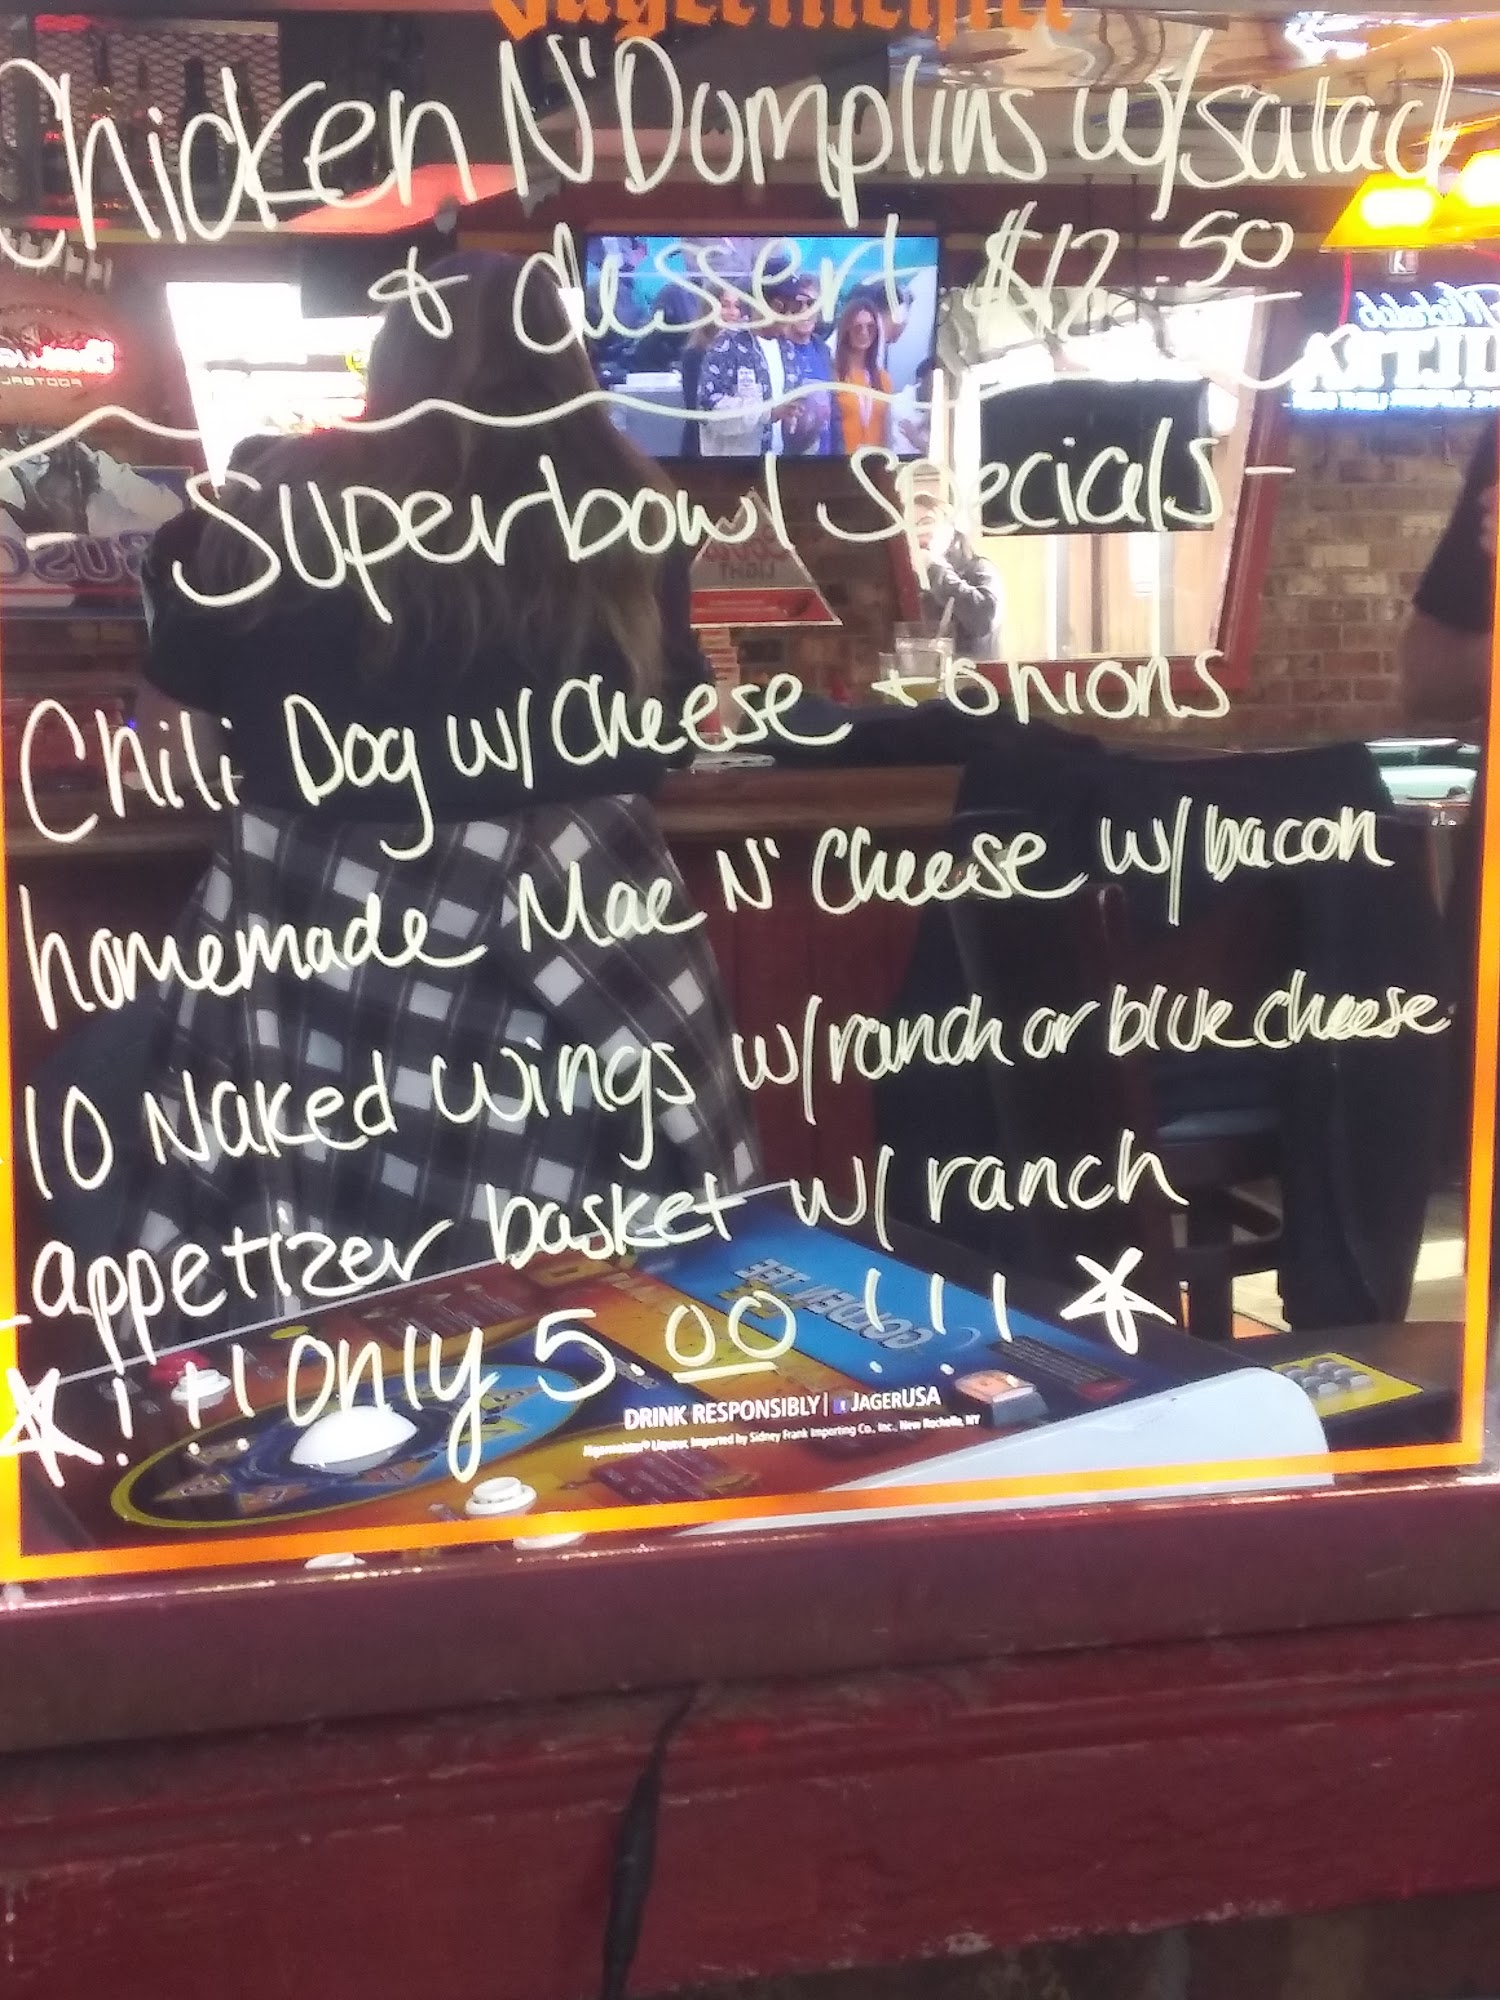 Jägermeister
Chicken N' Domplins w/salad
+ dessert $12.50
- Superbowl Specials -
Chili Dog w/ Cheese + onions
homemade Mac N' Cheese w/ bacon
10 Naked wings w/ranch or blue cheese
appetizer basket w/ ranch
! !! only 5.00 !!!
DRINK RESPONSIBLY | JAGERUSA
Jägermeister® Liqueur, Imported by Sidney Frank Importing Co., Inc., New Rochelle, NY
GOLDEN TEE
Michelob
ULTRA
BUSC
LIGHT
FOOTBALL